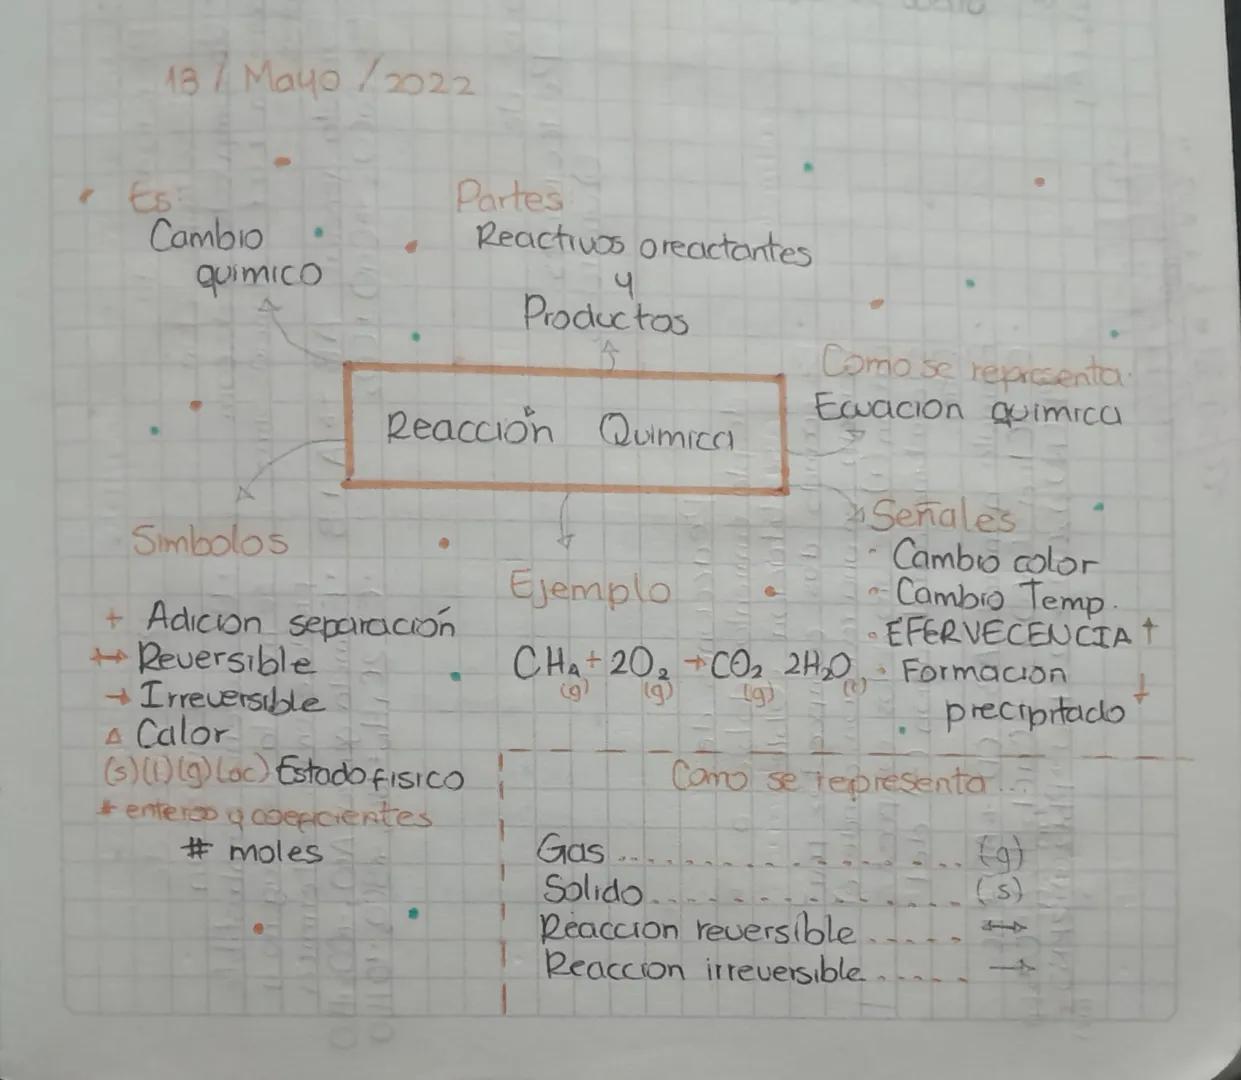 13 / Mayo / 2022
Es:
Cambio
quimico
Partes
Reactivos o reactantes
y
Productos
Como se representa.
Ecuacion quimica
Reacción Quimica
Simbolos
+ Adicion separación
↔ Reversible
→ Irreversible
△ Calor
(s)(l)(g)(ac) Estado fisico
# enteros y coeficientes
# moles
Ejemplo
CH4 + 2O2 → CO2 2H2O
(g) (g) (g) (l)
Señales
· Cambio color
· Cambio Temp.
· EFERVECENCIA ↑
· Formacion
precipitado ↓
Como se representa...
Gas ................ (g)
Solido................ (s)
Reaccion reversible ..... ↔
Reaccion irreversible ..... →